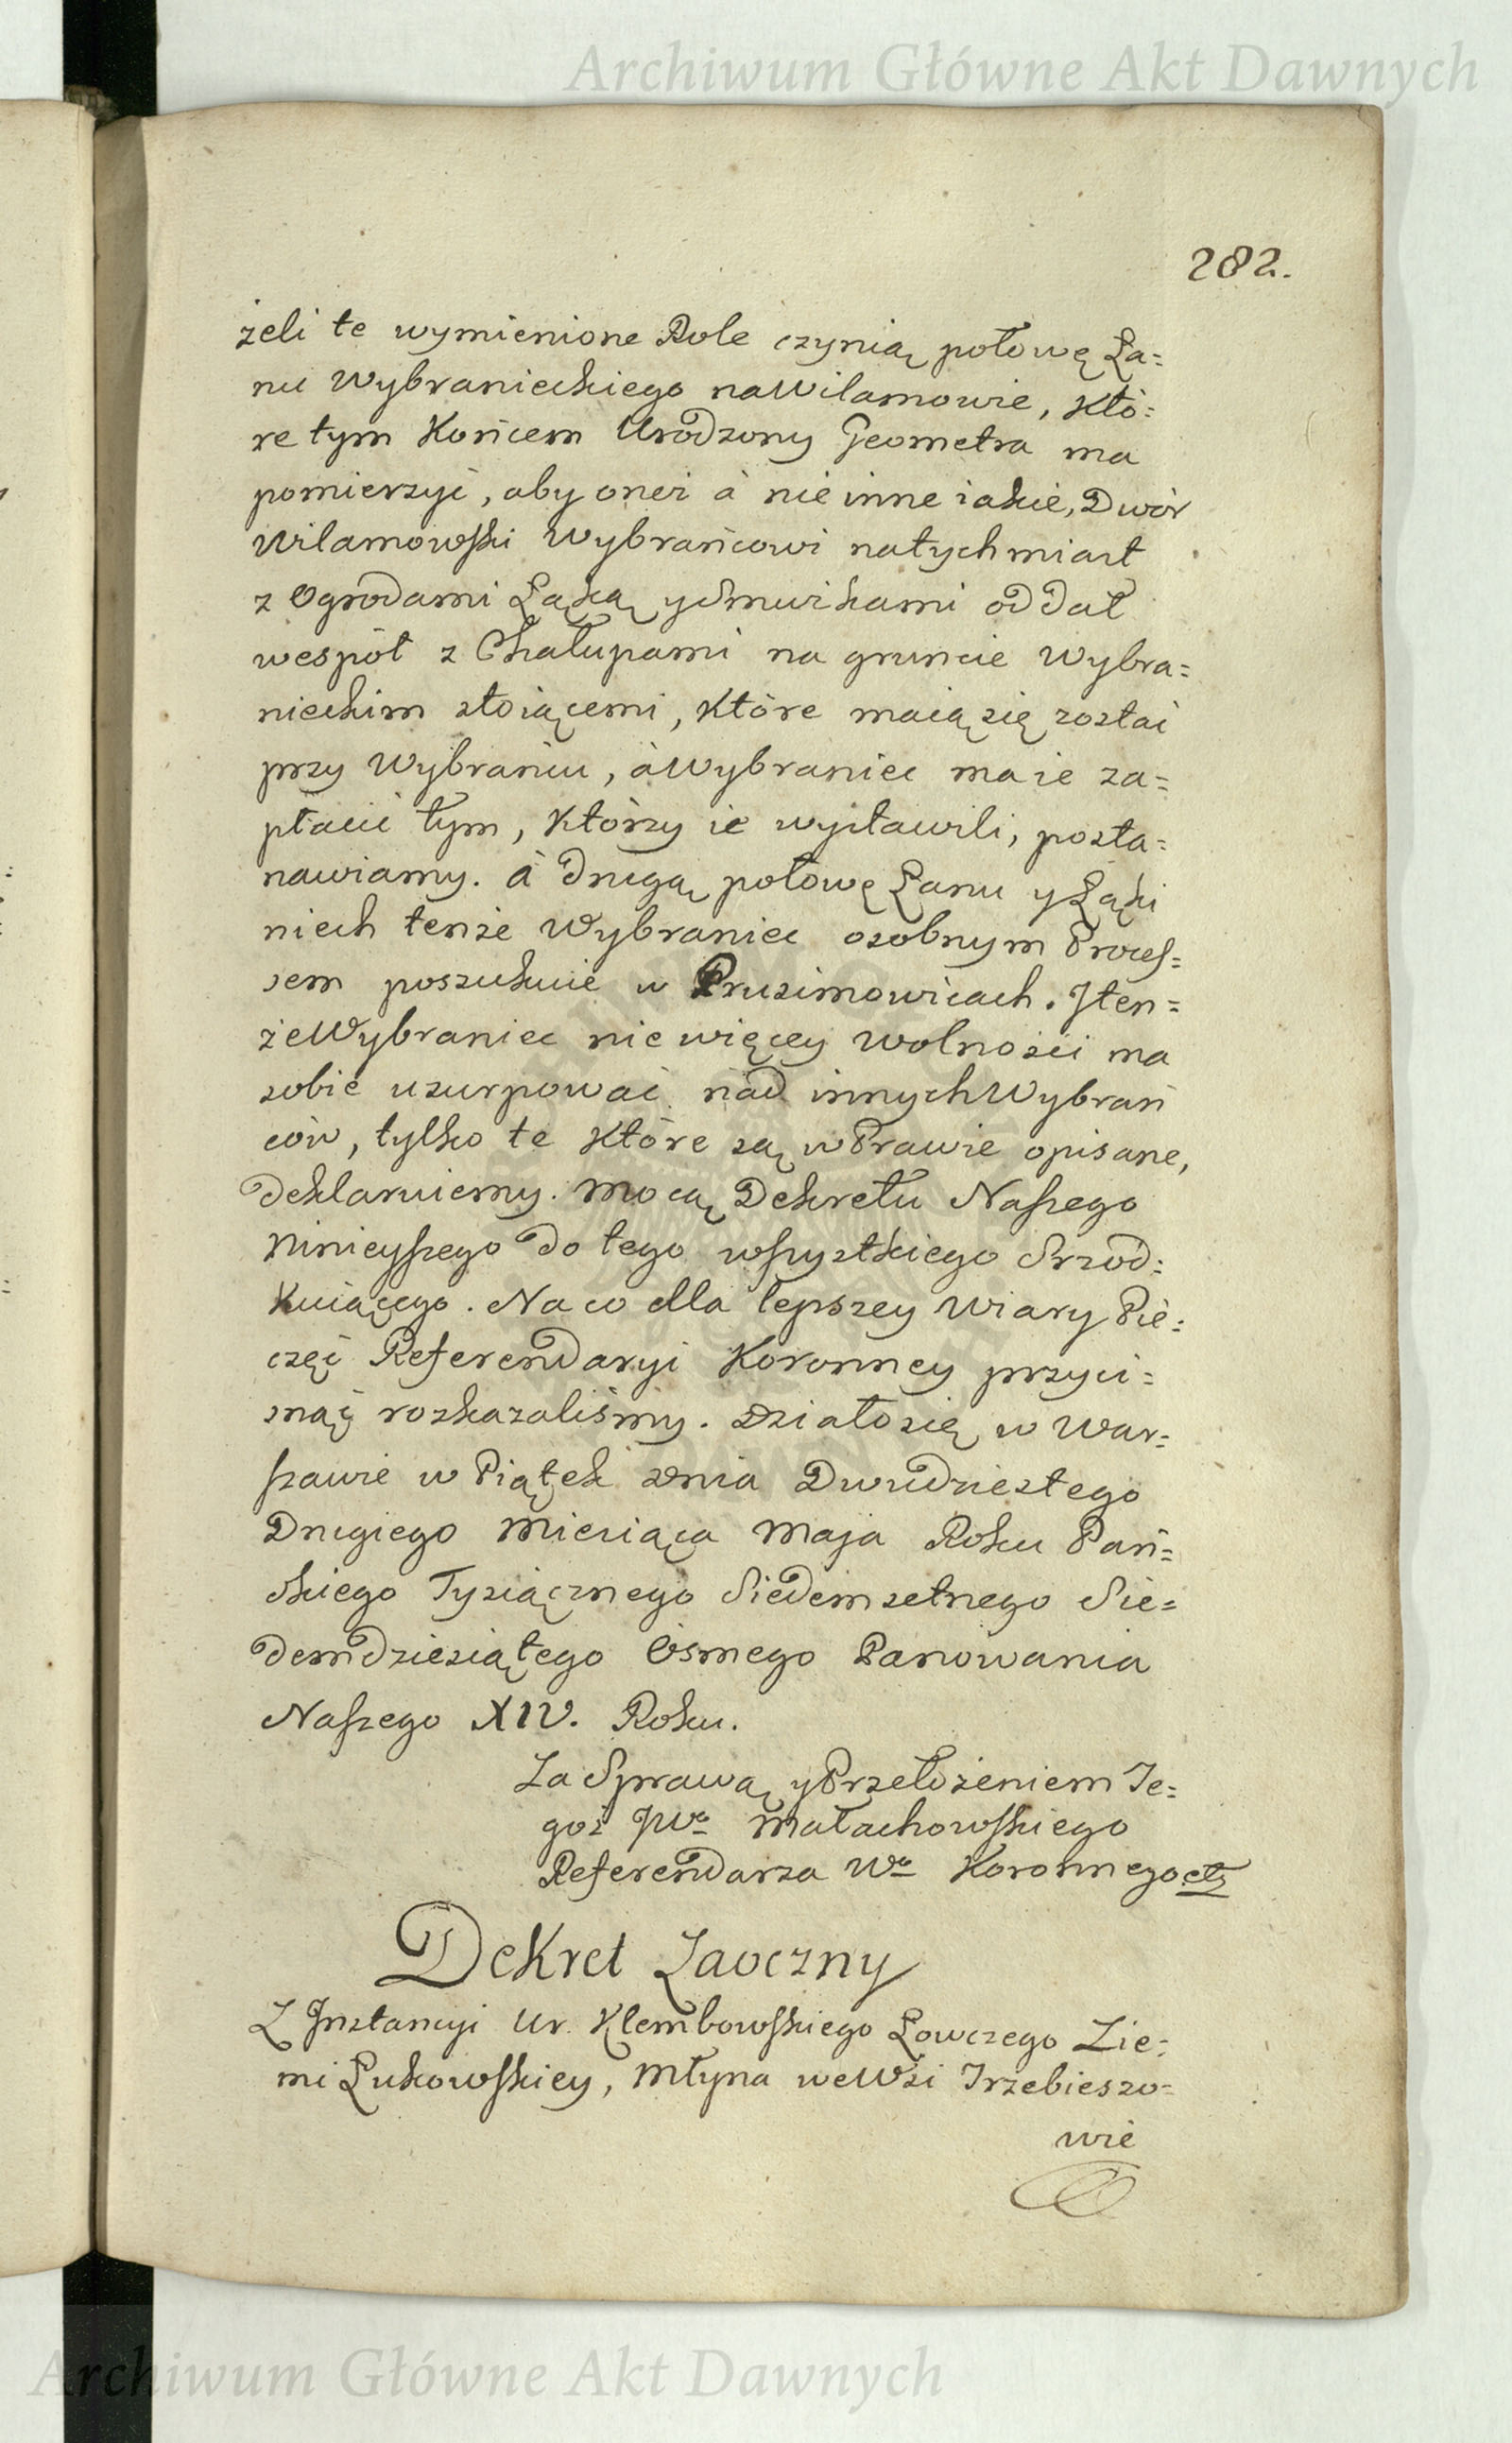 Archiwum Główne Akt Dawnych
282.
żeli te wymienione Role czynią połowę Ła=
nu Wybranieckiego na Wilamowie, któ=
re tym Końcem Urodzony Geometra ma
pomierzyć, aby oneż à nie inne iakie, Dwór
Wilamowski Wybrańcowi natychmiast
z Ogrodami Łąką y Smużkami oddał
wespół z Chałupami na gruncie Wybra=
nieckim stoiącemi, które maią się zostać
przy Wybrańcu, à Wybraniec ma ie za=
płacić tym, którzy ie wystawili, posta=
nawiamy. à drugą połowę Łanu y Łąki
niech tenże Wybraniec osobnym Procef=
sem poszukuie w Pruszimowicach. Iten=
że Wybraniec nie więcey wolności ma
sobie uzurpować nad innych Wybrań
ców, tylko te które są w Prawie opisane,
deklaruiemy. Mocą Dekretu Nafzego
Ninieyfzego do tego wfzystkiego Srzod=
kuiącego. Na co dla lepszey Wiary Pie=
częć Referendaryi Koronney przyci=
snąć rozkazaliśmy. Działo się w War=
fzawie w Piątek dnia Dwudziestego
Drugiego Miesiąca Maja Roku Pań=
skiego Tysiącznego Siedemsetnego Sie=
demdziesiątego Osmego Panowania
Nafzego XIV. Roku.
Za Sprawą y Przełożeniem Te=
goż JWo Małachowskiego
Referendarza Wo Koronnego etz
Dekret Zaoczny
Z Instancyi Ur. Klembowskiego Łowczego Zie=
mi Łukowskiey, Młyna we Wsi Trzebieszo=
wie
Archiwum Główne Akt Dawnych